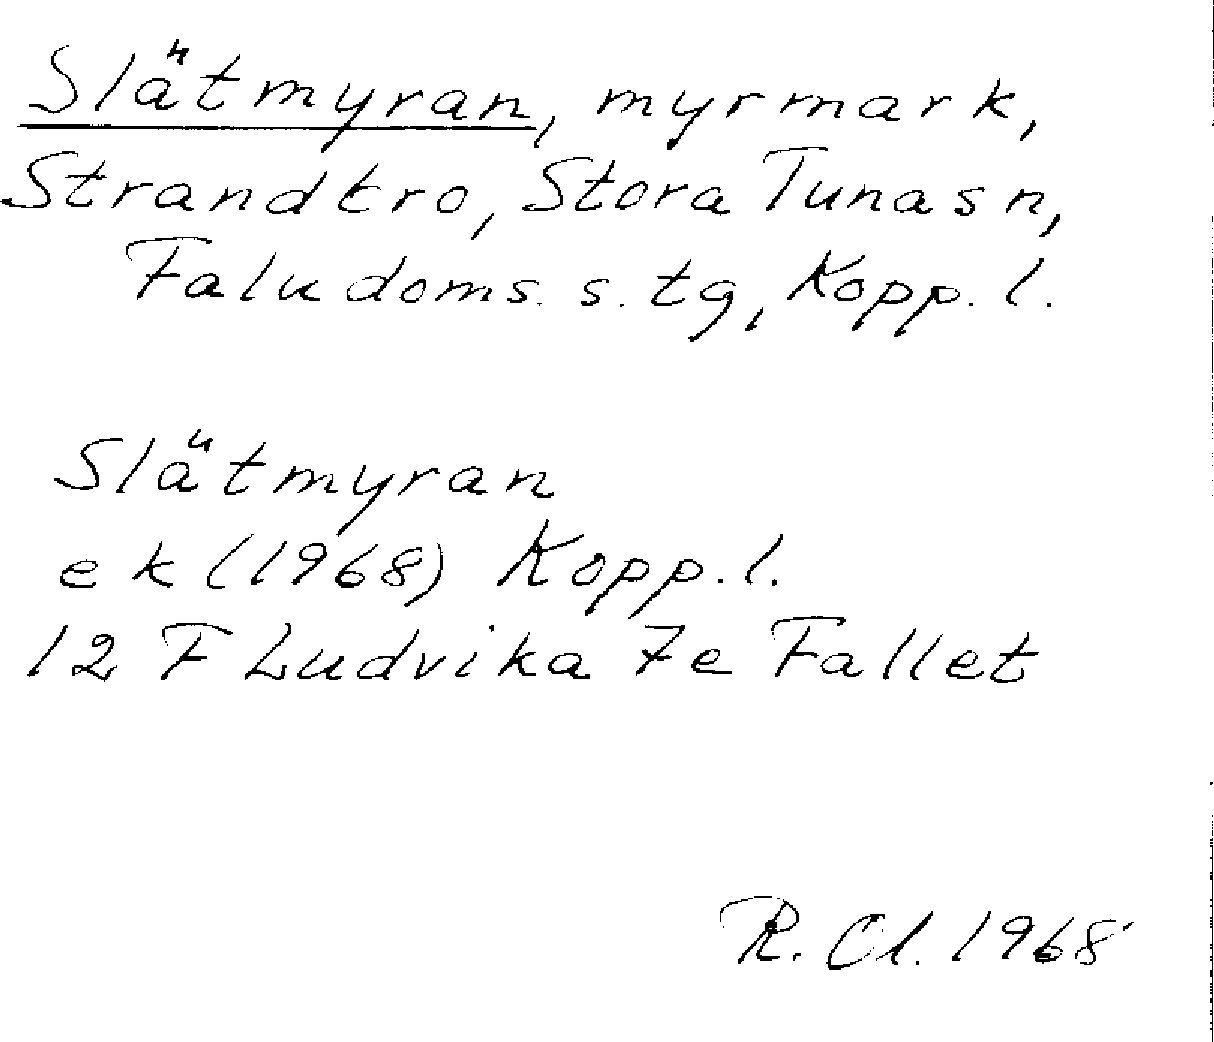 Slätmyran, myrmark,
Strandtro, Stora Tuna sn,
Falu doms. s. tg, Kopp. l.
Slätmyran
ek (1968) Kopp. l.
12 F Ludvika 7e Fallet
R. Cl. 1968